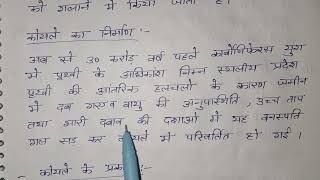 को गलाने में किया जाता है।
कोयले का निर्माण :-
अब से 30 करोड़ वर्ष पहले कार्बोनिफेरस युग
में पृथ्वी के अधिकांश निम्न स्थलीय प्रदेश
पृथ्वी की आंतरिक हलचलो के कारण जमीन
में दब गए वायु की अनुपस्थिति, उच्च ताप
तथा भारी दबाव की दशाओं में यह वनस्पति
गल सड़ कर कोयले में परिवर्तित हो गई।
कोयले के प्रकार :-